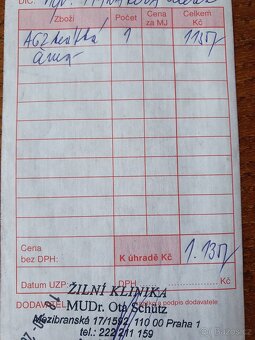 DIČ:
Zboží Počet Cena za MJ Celkem Kč
AG2 krátká 1 1157
Cena bez DPH: K úhradě Kč 1.157
Datum UZP: DPH Kč
DODAVATEL: a podpis dodavatele:
ŽILNÍ KLINIKA
MUDr. Ota Schütz
Mezibranská 17/1592, 110 00 Praha 1
tel.: 222 211 159